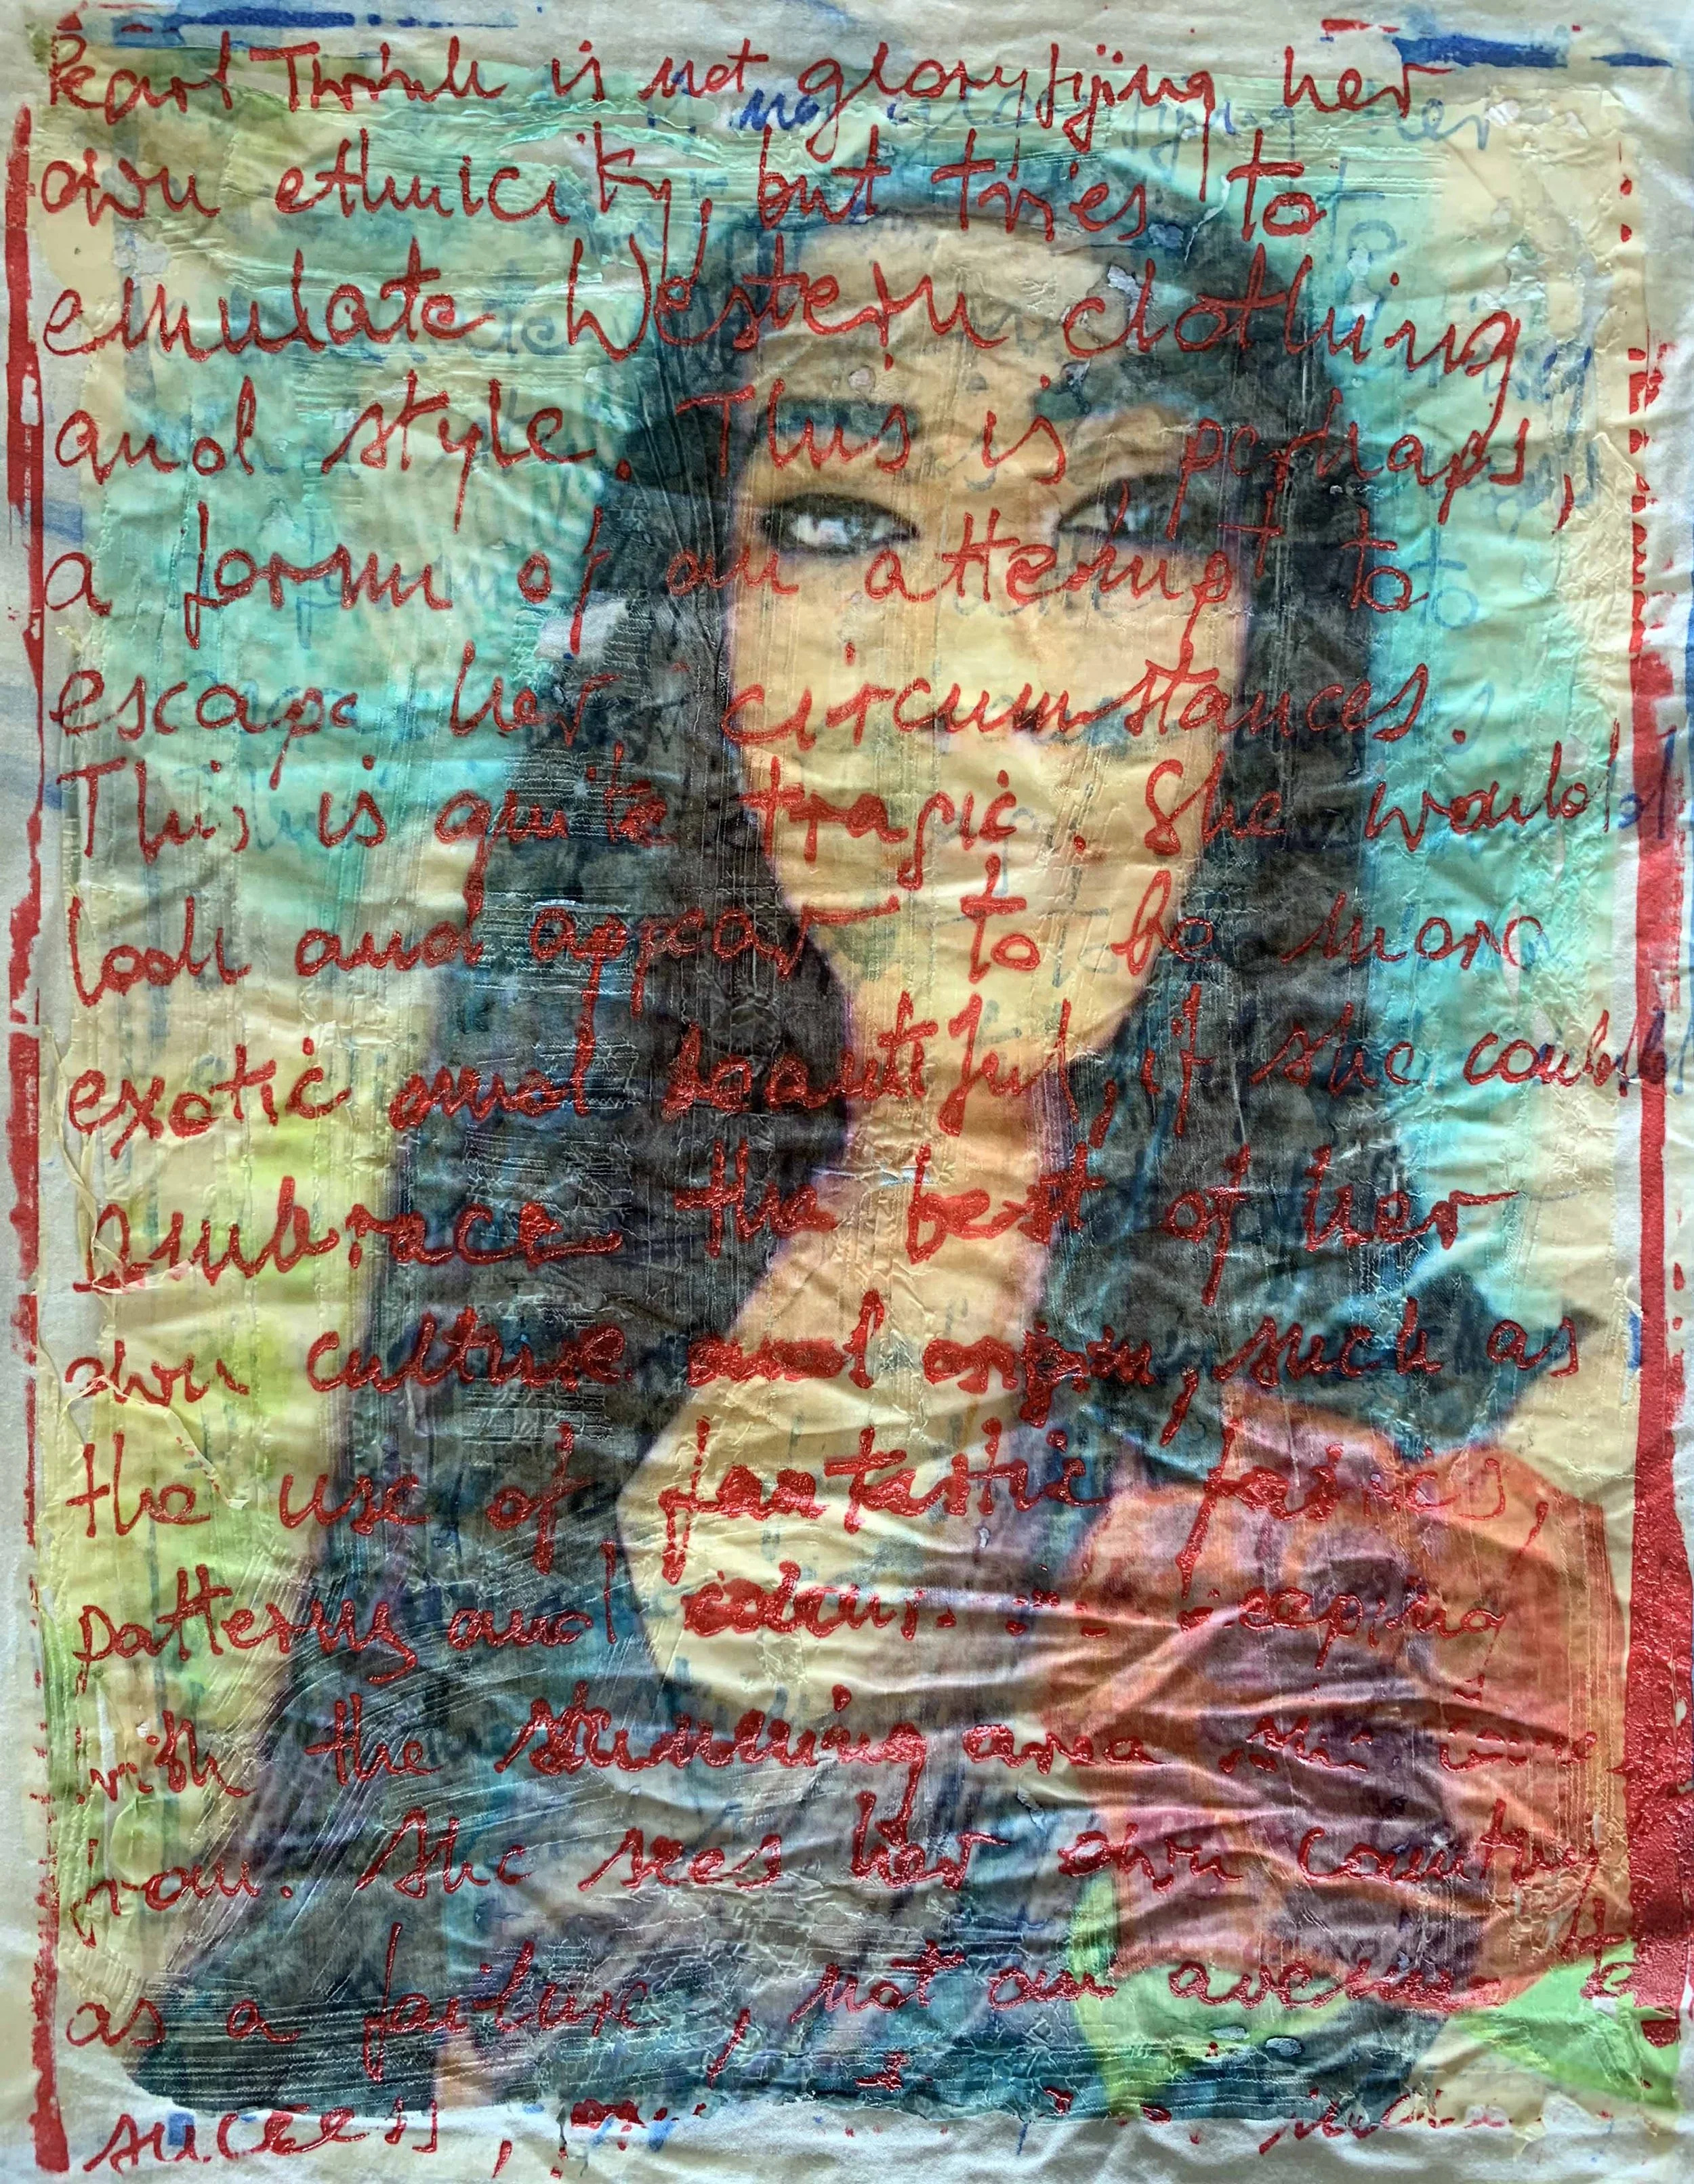 Pearl Thrink is not gloryfijing her
own ethnicity, but tries to
emulate Western clothing
and style. This is, perhaps,
a form of an attempt to
escape her circumstances.
This is quite tragic. She would
look and appear to be more
exotic and beautiful, if she could
embrace the best of her
own culture and origin, such as
the use of fantastic fabrics,
patterns and colours keeping
with the stunning area
from. She sees her own country
as a failure, not an avenue to
success,